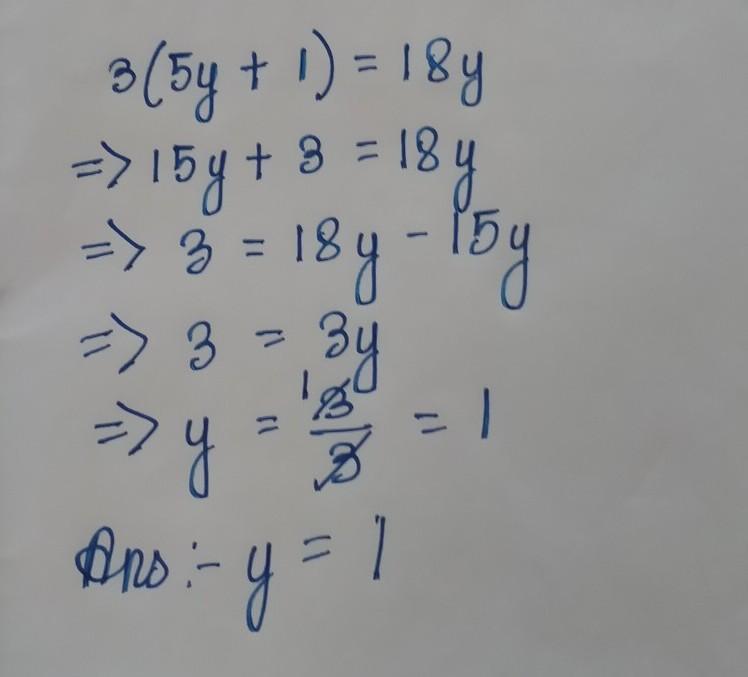 3(5y + 1) = 18y
=> 15y + 3 = 18y
=> 3 = 18y - 15y
=> 3 = 3y
=> y = 3/3 = 1
Ans :- y = 1